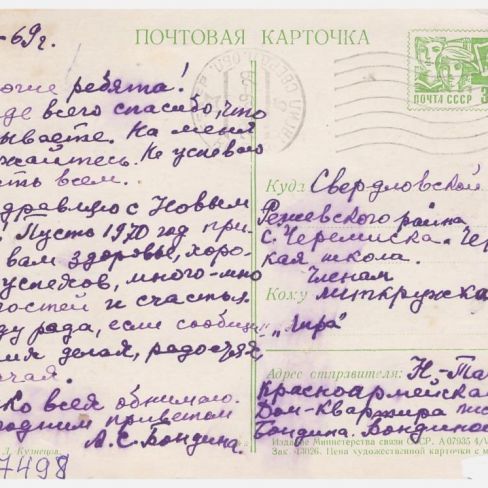 -69г.
ПОЧТОВАЯ КАРТОЧКА
ПОЧТА СССР
ребята!
всего спасибо, что
ываете. На меня
жайтесь. Не успеваю
всем.
здравляю с Новым
Пусть 1970 год при-
вам здоровье, хоро-
успехов, много-мно
остей и счастья.
ду рада, если сообщи
делах, радостях,
Ко всех обнимаю.
одним приветом
А.С. Бондина.
Д. Кузнецов.
7498
Куда Свердловской
Режевского района
с. Черемисска. Чер
кая школа.
Кому Членам
литкружка
"Лира"
Адрес отправителя: Н-Та
Красноармейская
Дом-Квартира
Бондина. Бондиной
Издание Министерства связи СССР. А 07935 4/V
Зак. 13026. Цена художественной карточки с м